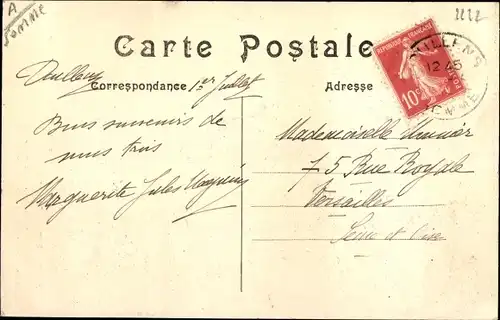 A
Somme
Carte Postale
Correspondance
Adresse
REPUBLIQUE FRANÇAISE
10c
DOULLENS
12 45
SOMME
Doullens 1er Juillet
Bons souvenirs de
nous trois
Marguerite Jules
Mademoiselle
75 Rue Royale
Versailles
Seine et Oise